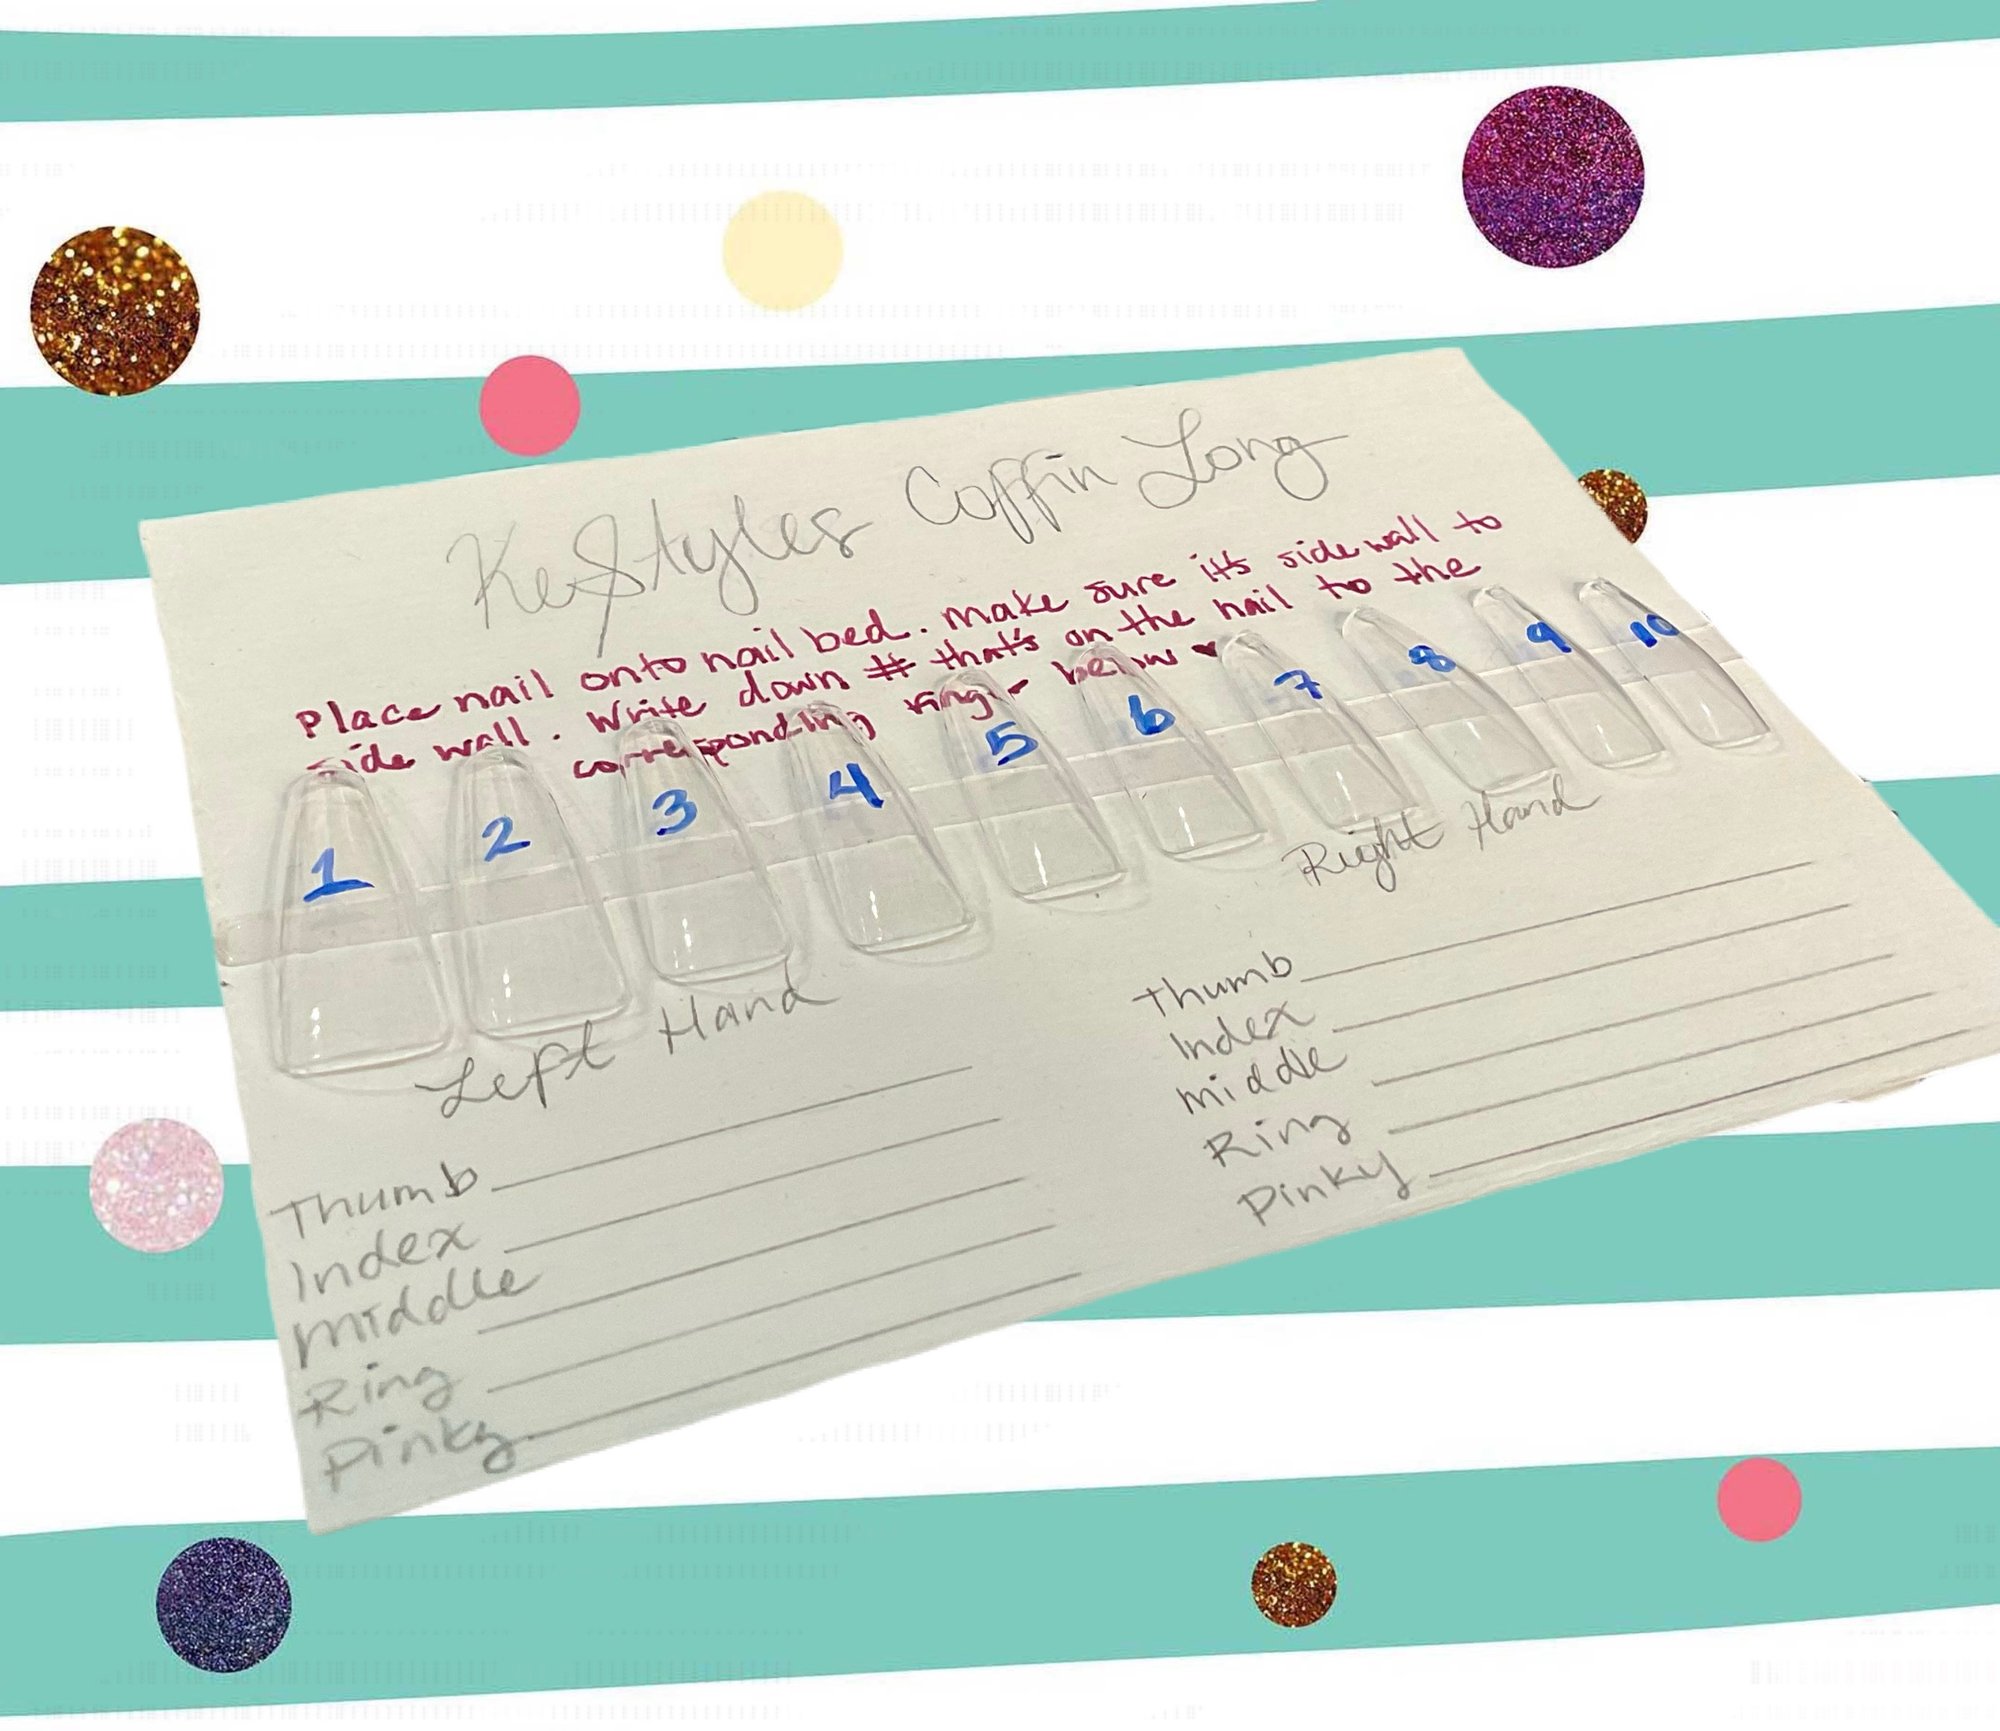 KeStyles Coffin Long
Place nail onto nail bed. Make sure it's side wall to
side wall. Write down # that's on the nail to the
corresponding finger below ♥
1 2 3 4 5 6 7 8 9 10
Left Hand
Thumb
Index
Middle
Ring
Pinky
Right Hand
Thumb
Index
Middle
Ring
Pinky